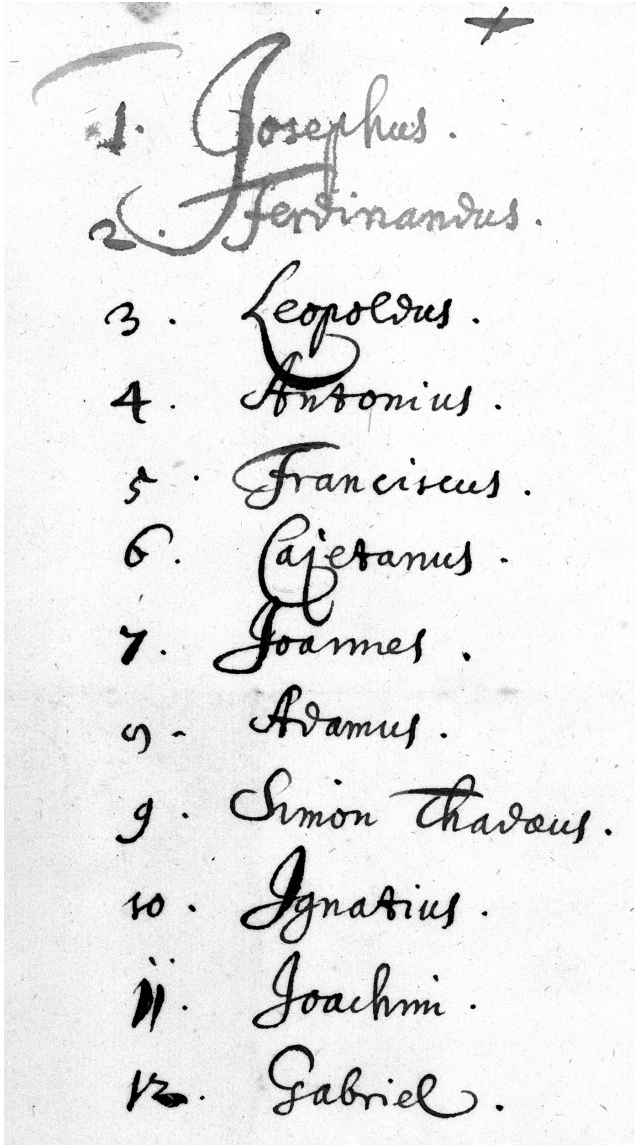 1. Josephus.
2. Ferdinandus.
3. Leopoldus.
4. Antonius.
5. Franciscus.
6. Cajetanus.
7. Joannes.
8. Adamus.
9. Simon Thadæus.
10. Ignatius.
11. Joachim.
12. Gabriel.